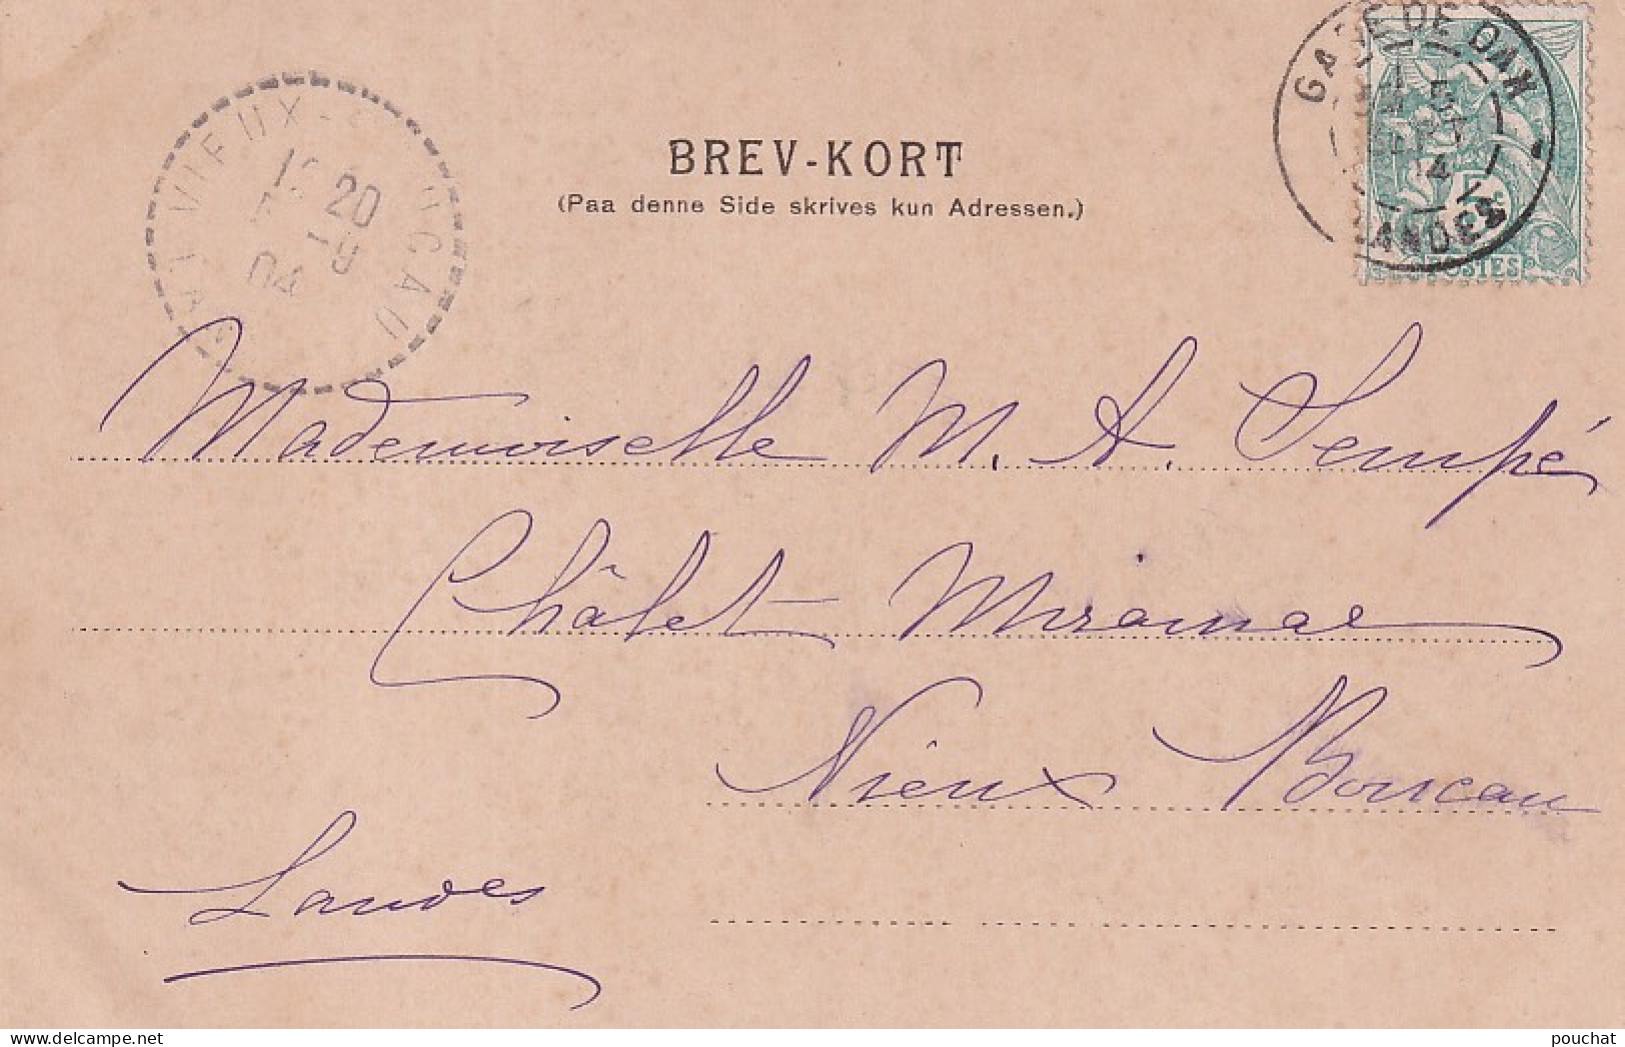 GARE DE DAX
5
04
LANDES
5c
POSTES
VIEUX-BOUCAU
20
5 9
04
BREV-KORT
(Paa denne Side skrives kun Adressen.)
Mademoiselle M. A. Sempé
Châlet Miramar
Vieux Boucau
Landes
pouchat